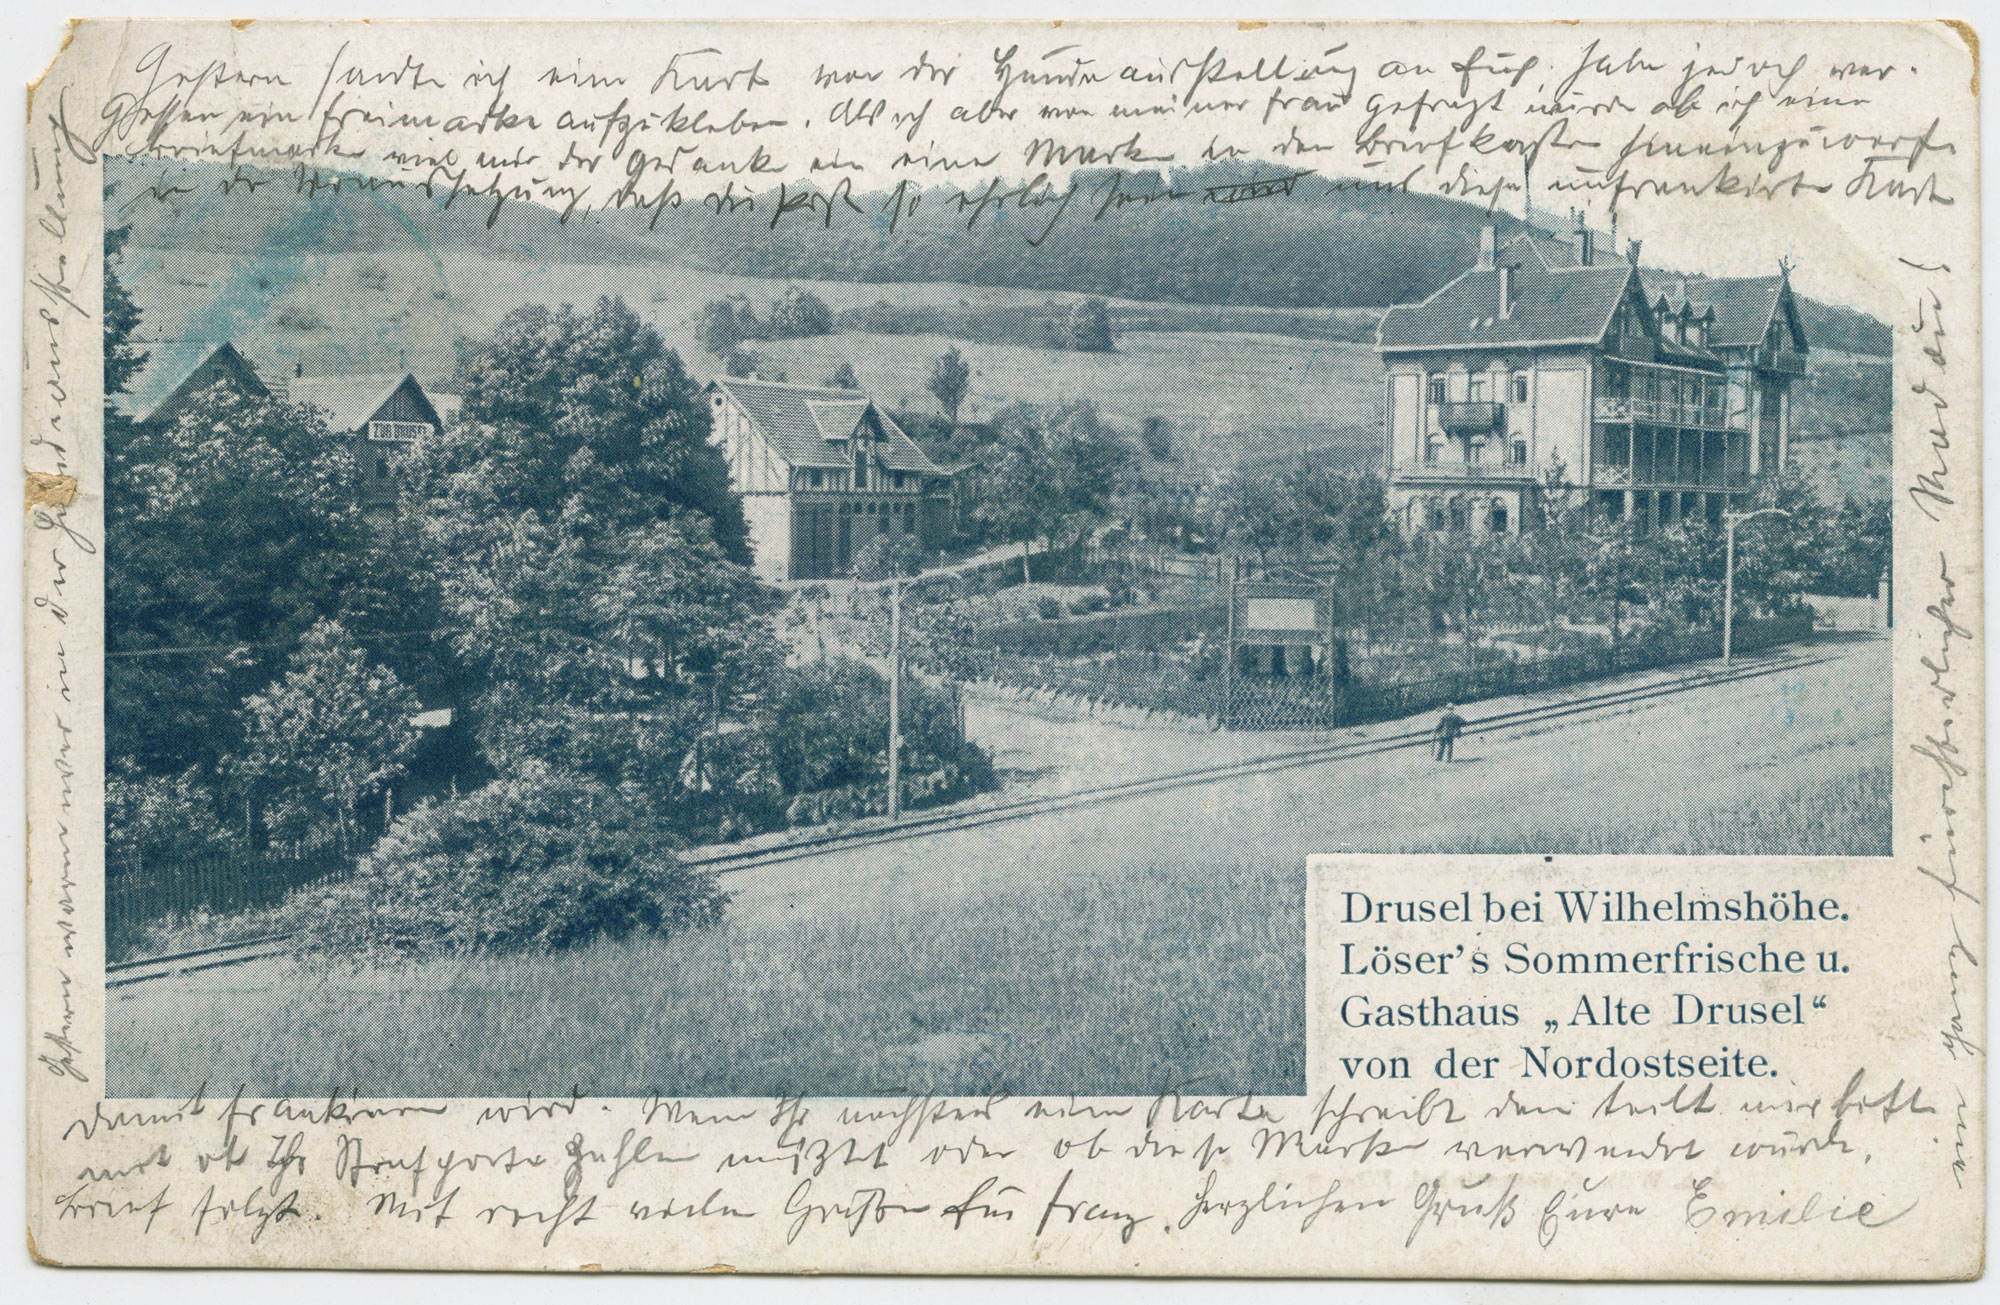 Gestern sandte ich eine Karte von der Hundeausstellung an Euch. Habe jedoch ver-
gessen ein Freimarke aufzukleben. Als ich aber von meiner Frau gefragt wurde ob ich eine
Briefmarke viel mir der Gedanke ein eine Marke in den Briefkasten hineinzuwerfen
in der Voraussetzung, daß die Post so ehrlich sein wird und diese unfrankirte Karte
ZUR DRUSEL
Drusel bei Wilhelmshöhe.
Löser's Sommerfrische u.
Gasthaus „Alte Drusel"
von der Nordostseite.
damit frankiren wird. Wenn Ihr nächstens eine Karte schreibt dann teilt mir bitte
mit ob Ihr Strafporto zahlen mußtet oder ob diese Marke verwendet wurde.
Brief folgt. Mit recht vielen Grüßen Eui Franz. Herzlichen Gruß Eure Emilie
Gestern waren wir in der Hundeausstellung
ein ganz fürchterlicher Radau!